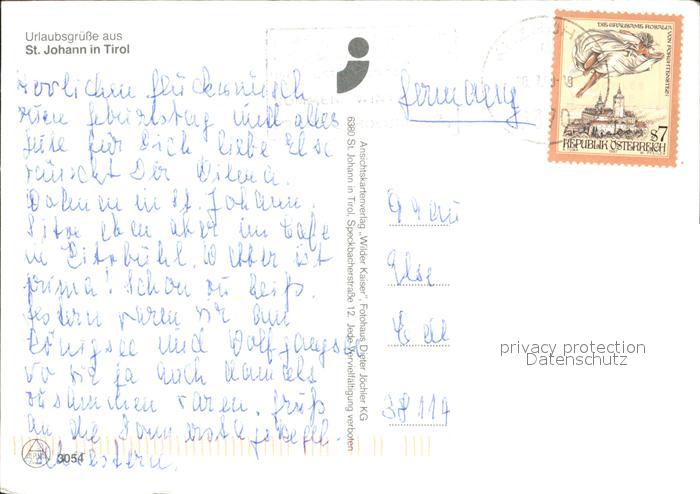 Urlaubsgrüße aus
St. Johann in Tirol
Herzlichen Glückwunsch
zum Geburtstag und alles
Gute für Dich liebe Else
wünscht Dir
Wohnen in St. Johann.
Sitze eben aber im Cafe
in Kitzbühl. Wetter ist
prima! Schon zu heiß.
Gestern waren wir am
Königsee und Wolfgangs.
wo wir ja auch damals
zusammen waren. Gruß
an die
3054
Ansichtskartenverlag „Wilder Kaiser“, Fotohaus Dieter Jöchler KG
6380 St. Johann in Tirol, Speckbacherstraße 12. Jede Vervielfältigung verboten
Germany
Frau
Else
38114
DIE GRAUSAME ROSALIA VON FORCHTENSTEIN
S7
REPUBLIK ÖSTERREICH
privacy protection
Datenschutz